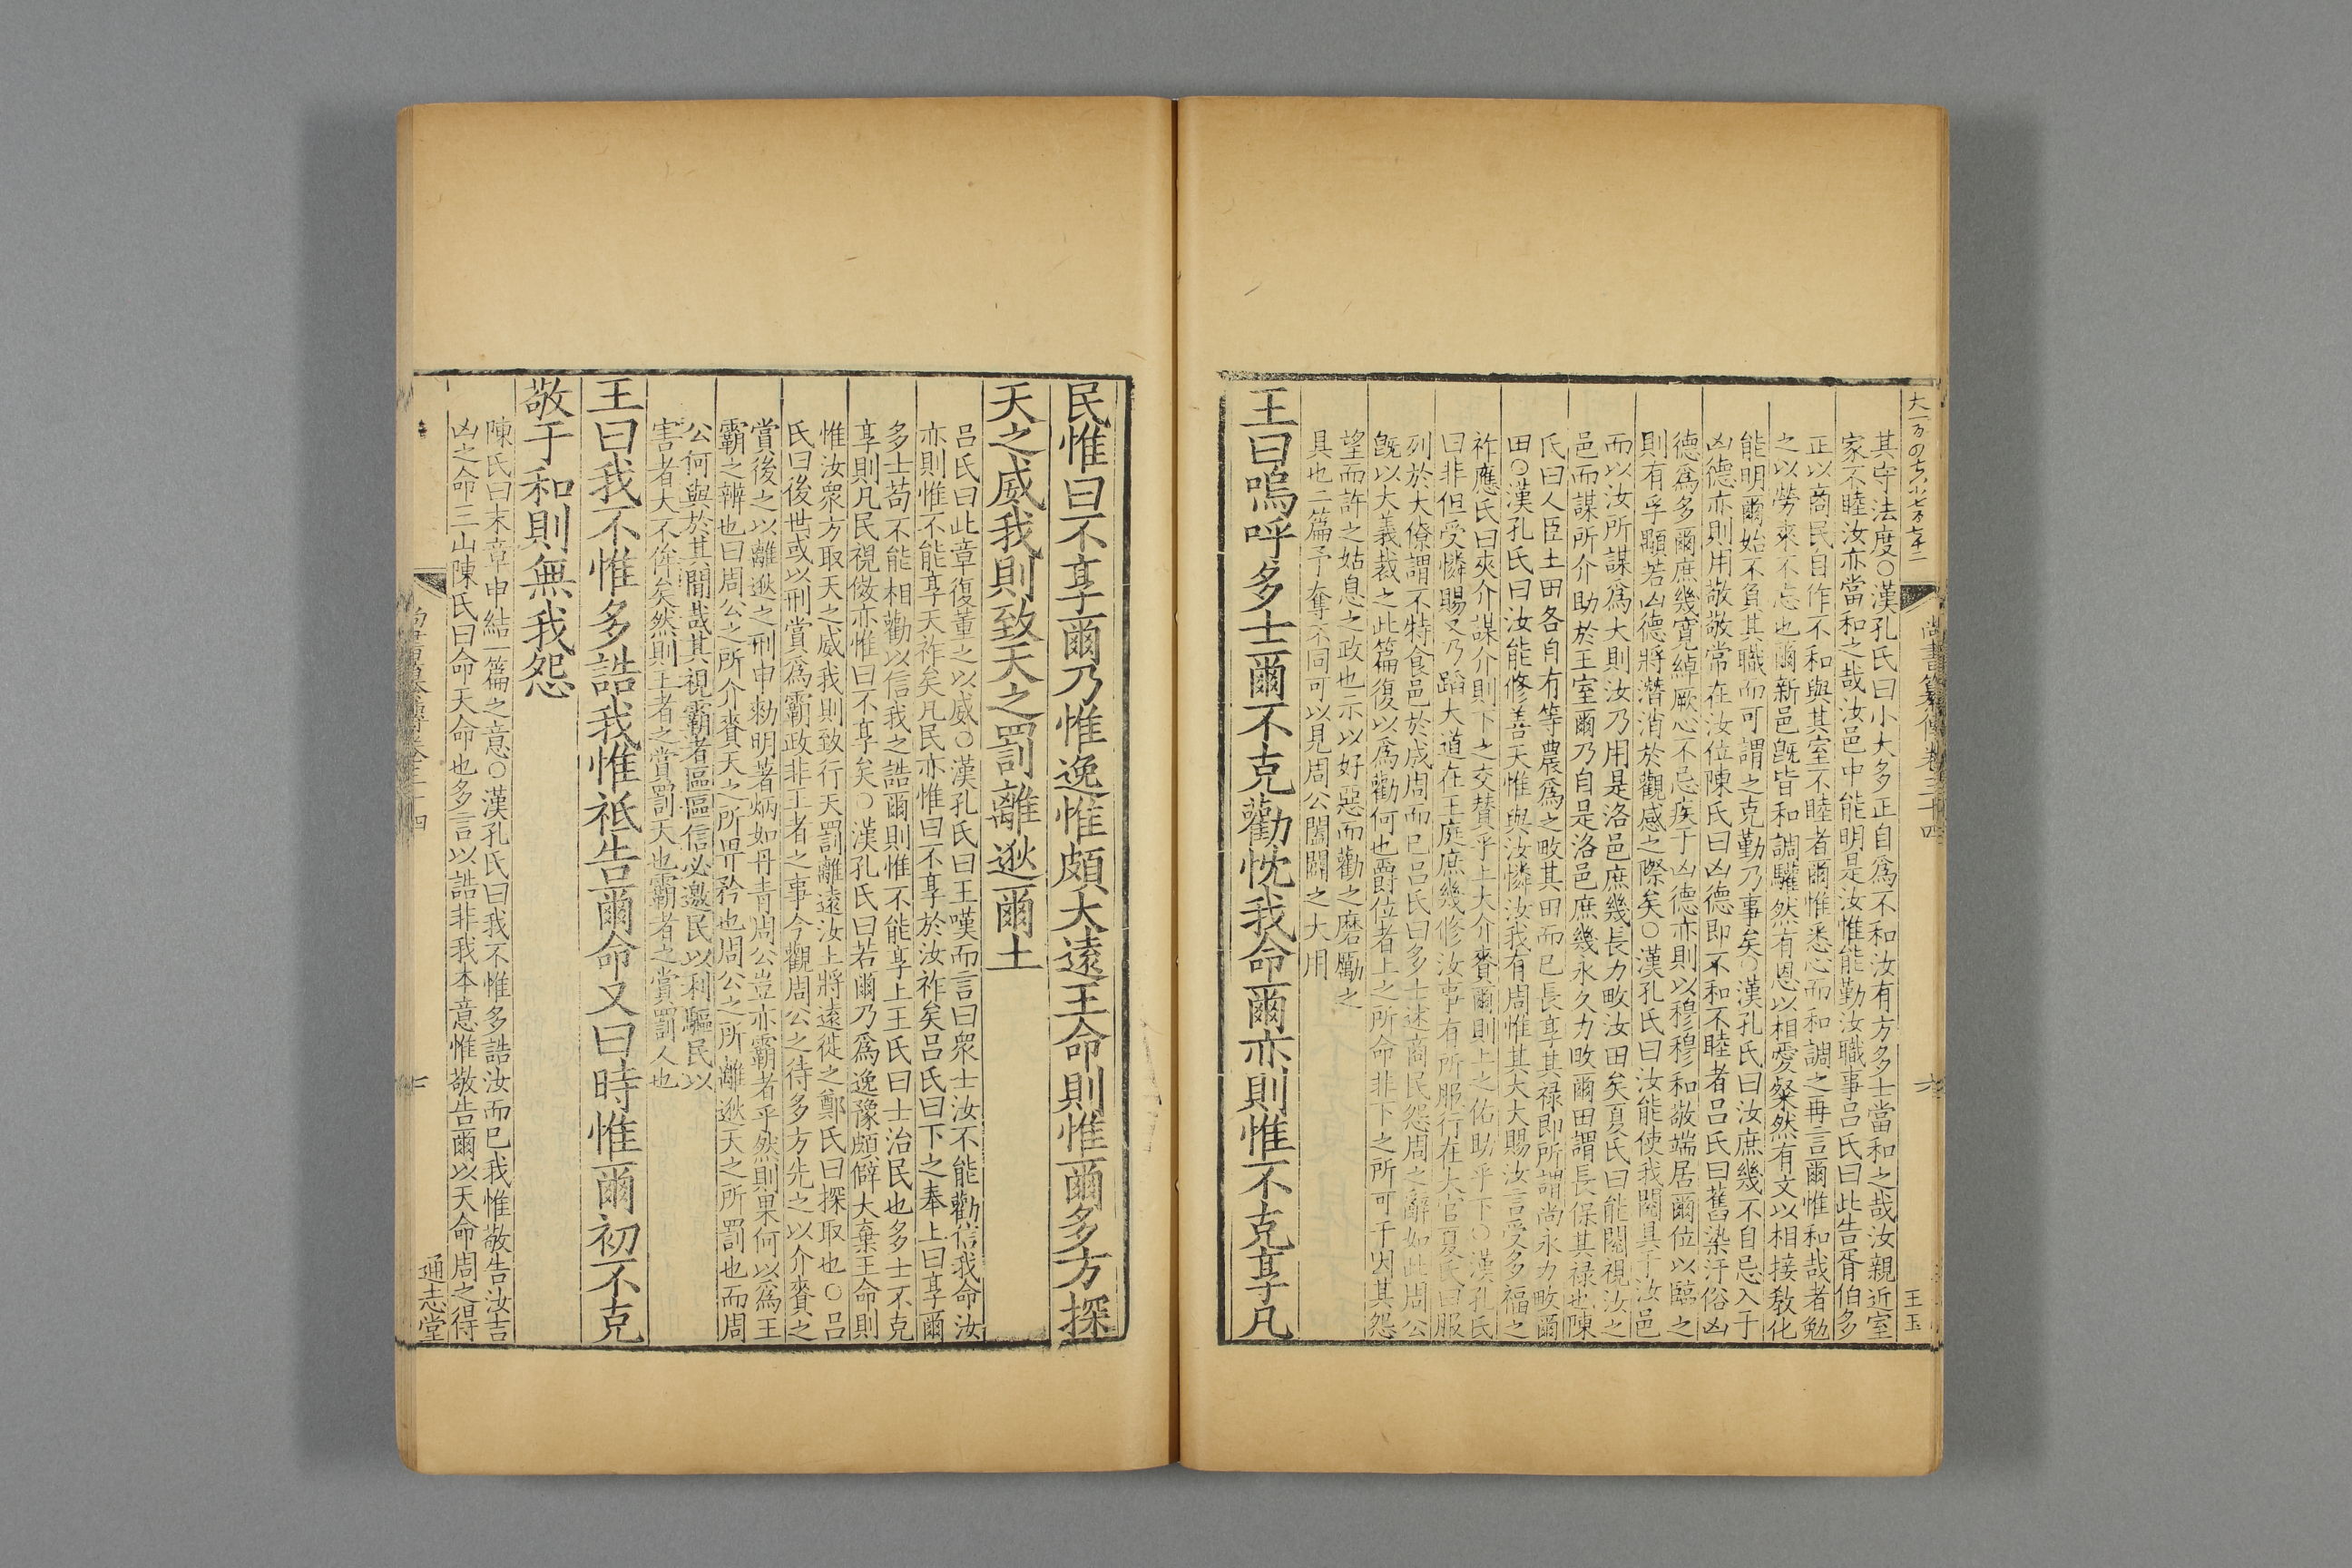 其守法度〇漢孔氏曰小大多正自爲不和汝有方多士當和之哉汝親近室
家不睦汝亦當和之哉汝邑中能明是汝惟能勤汝職事呂氏曰此告胥伯多
正以商民自作不和與其室不睦者爾惟悉心而和調之再言爾惟和哉者勉
之以勞來不忘也爾新邑旣皆和調驩然有恩以相愛粲然有文以相接敎化
能明爾始不負其職而可謂之克勤乃事矣〇漢孔氏曰汝庶幾不自忌入于
凶德亦則用敬敬常在汝位陳氏曰凶德即不和不睦者呂氏曰舊染汙俗凶
德爲多爾庶幾寬綽厥心不忌疾于凶德亦則以穆穆和敬端居爾位以臨之
則有孚顒若凶德將潛消於觀感之際矣〇漢孔氏曰汝能使我閱具于汝邑
而以汝所謀爲大則汝乃用是洛邑庶幾長力畋汝田矣夏氏曰能閱視汝之
邑而謀所介助於王室爾乃自是洛邑庶幾永久力畋爾田謂長保其祿也陳
氏曰人臣土田各自有等農爲之畋其田而已長享其祿即所謂尚永力畋爾
田〇漢孔氏曰汝能修善天惟與汝憐汝我有周惟其大大賜汝言受多福之
祚應氏曰夾介謀介則下之交賛乎上大介賚爾則上之佑助乎下〇漢孔氏
曰非但受憐賜又乃蹈大道在王庭庶幾修汝事有所服行在大官夏氏曰服
列於大僚謂不特食邑於成周而已呂氏曰多士迷商民怨周之辭如此周公
旣以大義裁之此篇復以爲勸何也爵位者上之所命非下之所可干因其怨
望而許之姑息之政也示以好惡而勸之磨勵之
具也二篇予奪不同可以見周公闔闢之大用
王曰嗚呼多士爾不克勸忱我命爾亦則惟不克享凡
民惟曰不享爾乃惟逸惟頗大遠王命則惟爾多方探
天之威我則致天之罰離逖爾土
呂氏曰此章復董之以威〇漢孔氏曰王嘆而言曰衆士汝不能勸信我命汝
亦則惟不能享天祚矣凡民亦惟曰不享於汝祚矣呂氏曰下之奉上曰享爾
多士苟不能相勸以信我之誥爾則惟不能享上王氏曰士治民也多士不克
享則凡民視傚亦惟曰不享矣〇漢孔氏曰若爾乃爲逸豫頗僻大棄王命則
惟汝衆方取天之威我則致行天罰離遠汝土將遠徙之鄭氏曰探取也〇呂
氏曰後世或以刑賞爲霸政非王者之事今觀周公之待多方先之以介賚之
賞後之以離逖之刑申勑明著炳如丹青周公豈亦霸者乎然則果何以爲王
霸之辨也曰周公之所介賚天之所畀矜也周公之所離逖天之所罰也而周
公何與於其間哉其視霸者區區信必邀民以利驅民以
害者大不侔矣然則王者之賞罰天也霸者之賞罰人也
王曰我不惟多誥我惟祗告爾命又曰時惟爾初不克
敬于和則無我怨
陳氏曰末章申結一篇之意〇漢孔氏曰我不惟多誥汝而已我惟敬告汝吉
凶之命三山陳氏曰命天命也多言以誥非我本意惟敬告爾以天命周之得
通志堂